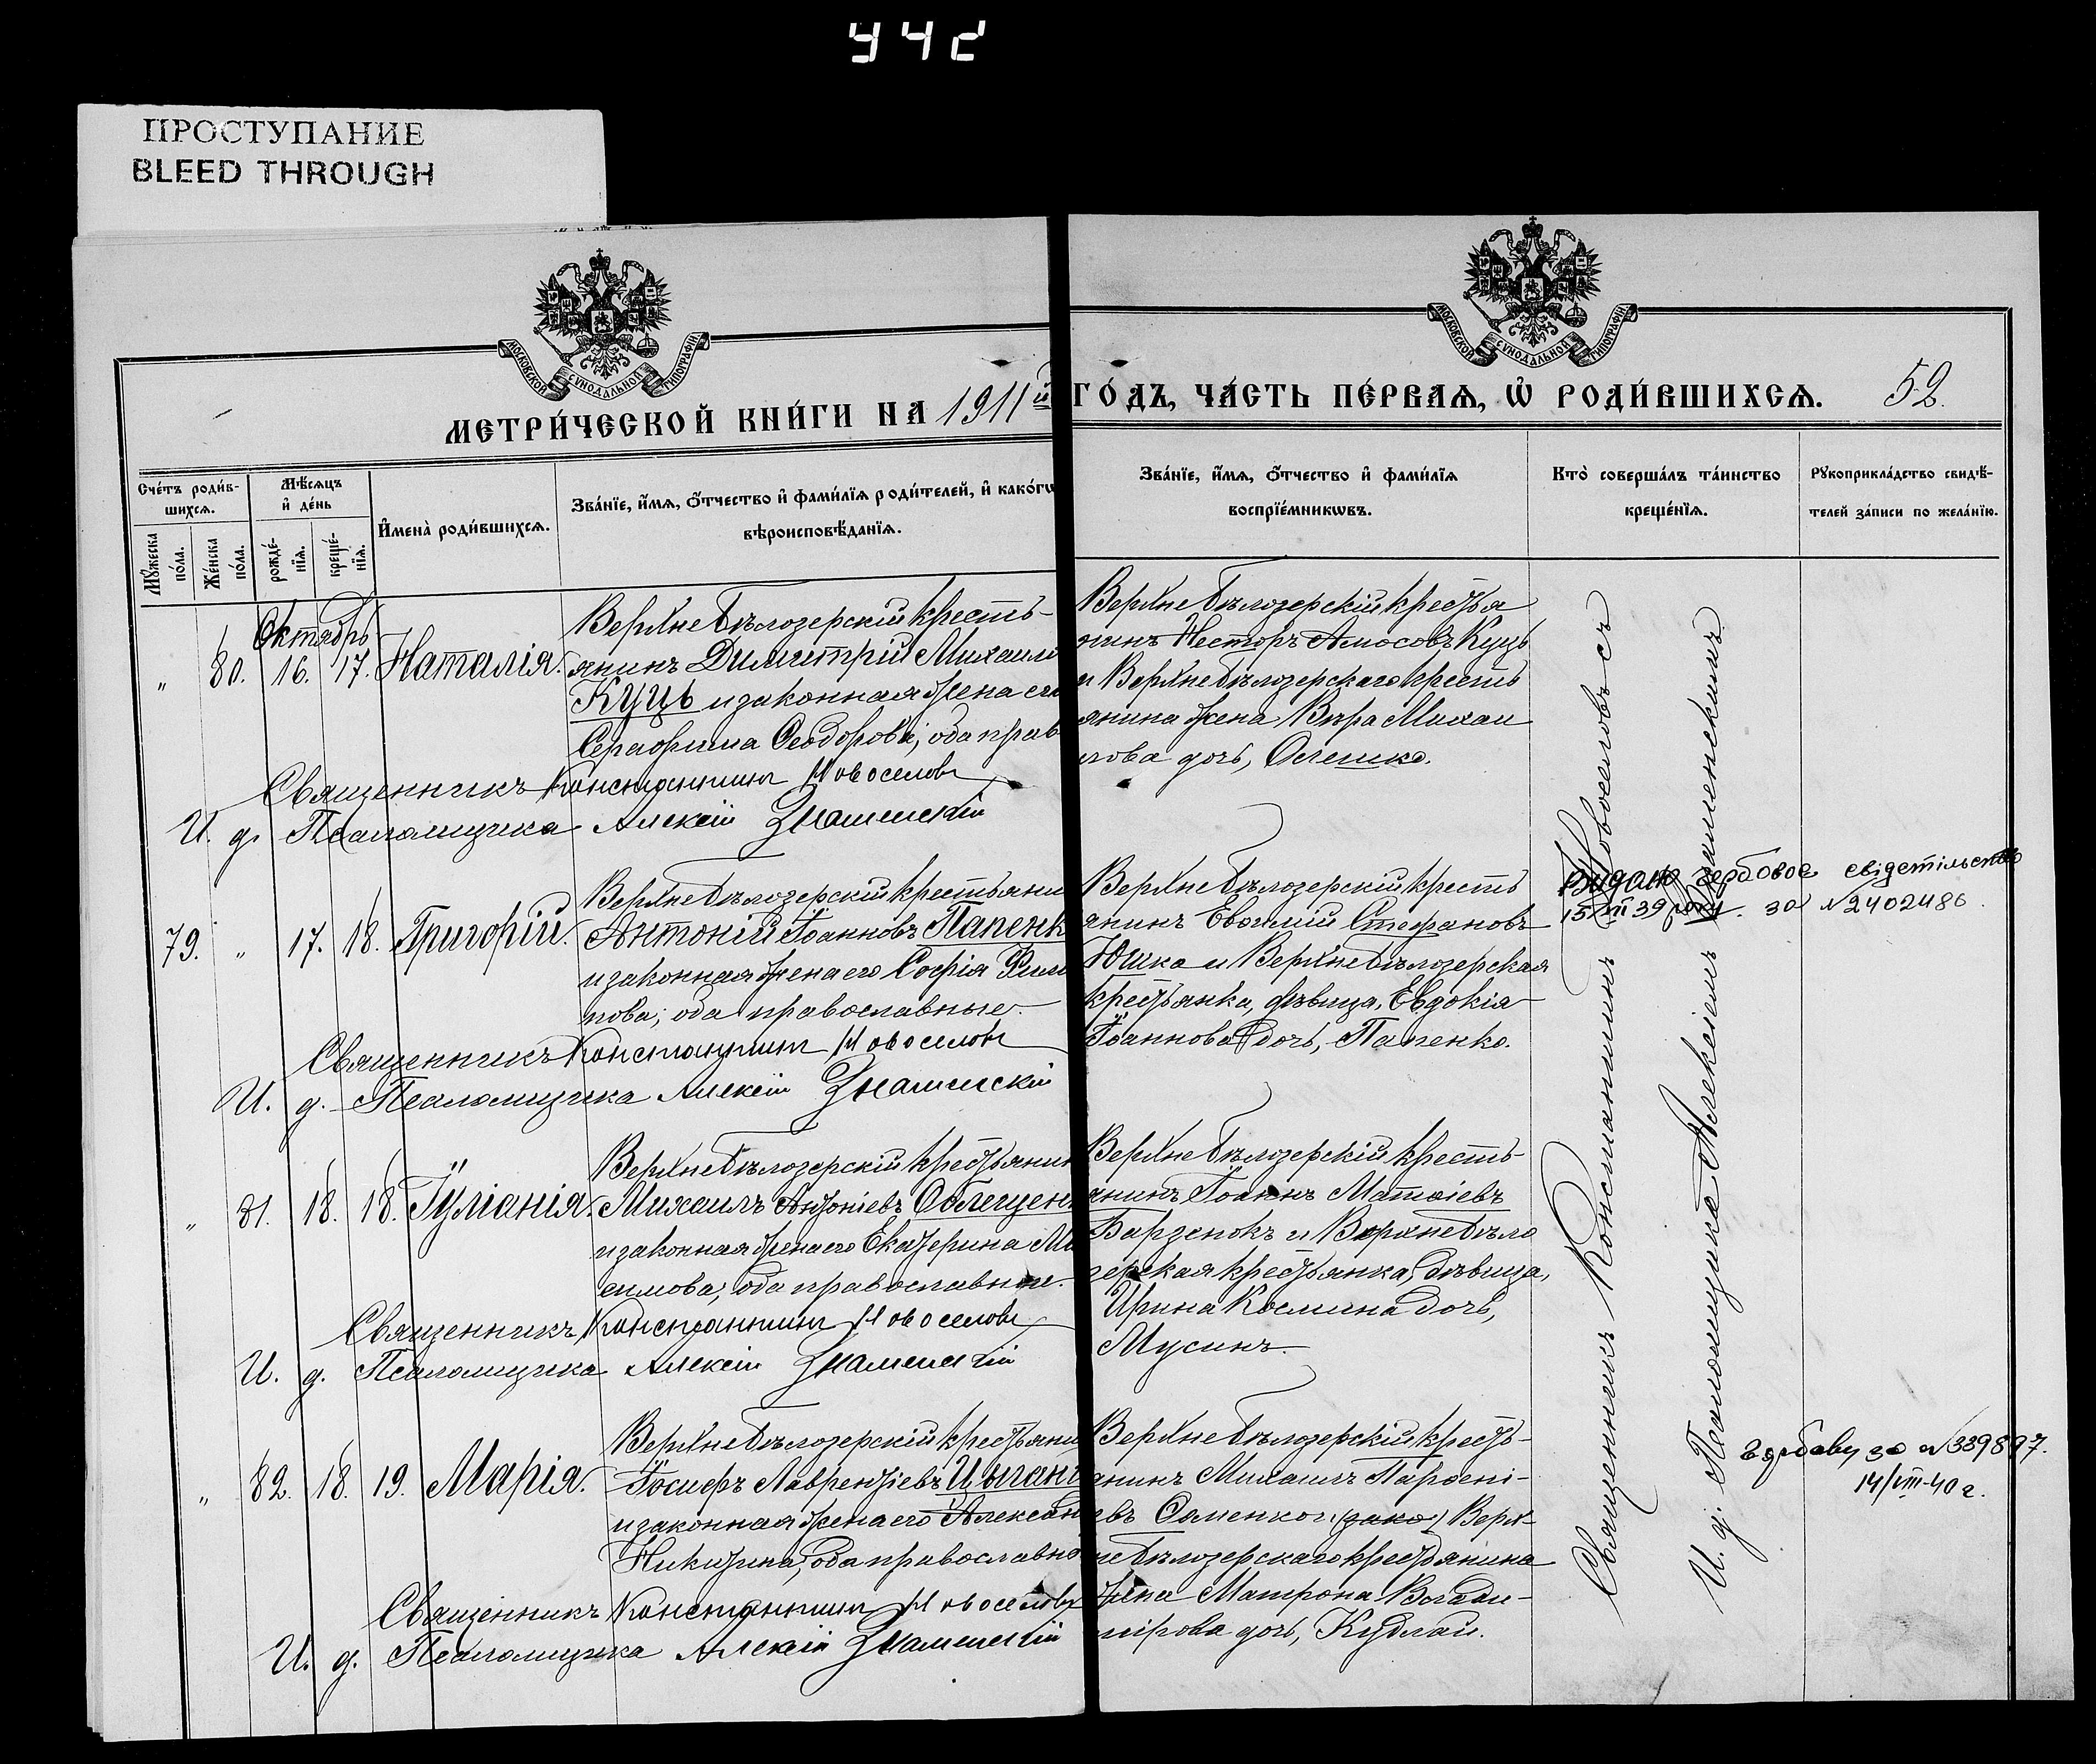 442
ПРОСТУПАНИЕ
BLEED THROUGH
МОСКОВСКОЙ СѴНОДАЛЬНОЙ ТИПОГРАФІИ
МОСКОВСКОЙ СѴНОДАЛЬНОЙ ТИПОГРАФІИ
МЕТРИ́ЧЕСКОЙ КНИ́ГИ НА 1911й ГО́ДЪ, ЧА́СТЬ ПЕ́РВАЯ, Ѡ҆ РОДИ́ВШИХСЯ. 52.
Сче́тъ роди́в-
шихся.
Мꙋ́жеска по́ла.
Же́нска по́ла.
Мѣ́сяцъ
и҆ де́нь
рожде́-
нїя.
креще́-
нїя.
И҆мена̀ роди́вшихся.
Зва́нїе, и҆́мя, ѻ҆́тчество и҆ фами́лїя роди́телей, и҆ како́гѡ
вѣроисповѣ́данїя.
Зва́нїе, и҆́мя, ѻ҆́тчество и҆ фами́лїя
воспрїе́мникѡвъ.
Кто̀ соверша́лъ та́инство
креще́нїя.
Рꙋкоприкла́дство свидѣ́-
телей за́писи по жела́нїю.
Октябрь
„ 80. 16. 17. Наталія.
Верхнебѣлозерскій кресть-
янинъ Димитрій Михаило
Куць и законная жена его
Серафима Ѳеодорова; оба прав
Верхнебѣлозерскій крестья
нинъ Несторъ Амосовъ Куць
и Верхнебѣлозерскаго кресть
янина жена Вѣра Михаи
лова дочь, Олешко.
Священникъ Константинъ Новоселовъ
И. д. Псаломщика Алексій Знаменскій
79. „ 17. 18. Григорій.
Верхнебѣлозерскій крестьяни
Антоній Іоанновъ Папенк
и законная жена его Софія Фили
пова; оба православные.
Верхнебѣлозерскій кресть
янинъ Евѳимій Стефановъ
Юшко и Верхнебѣлозерская
крестьянка, дѣвица, Евдокія
Іоаннова дочь, Папенко.
Видано гербовое свідетільство
15/VII 39 року. за №2402486.
Священникъ Константинъ Новоселовъ
И. д. Псаломщика Алексій Знаменскій
„ 81. 18. 18. Іуліанія.
Верхнебѣлозерскій крестьянин
Михаилъ Антоніевъ Облещен
и законная жена его Екатерина Ма
симова; оба православные.
Верхнебѣлозерскій кресть-
янинъ Іоаннъ Матѳіевъ
Барзенокъ и Верхнебѣло
зерская крестьянка, дѣвица,
Ирина Космина дочь,
Мусинъ.
Священникъ Константинъ Новоселовъ
И. д. Псаломщика Алексій Знаменскій
„ 82. 18. 19. Марія.
Верхнебѣлозерскій крестьяни
Іосифъ Лаврентіевъ Цыган
и законная жена его Александ
Никитина; оба православны
Верхнебѣлозерскій кресть-
янинъ Михаилъ Парѳені-
евъ Саменко и (зако) Верх-
небѣлозерскаго крестьянина
жена Матрона Влади-
мірова дочь, Кудлай.
за №339897.
14/VIII-40 г.
Священникъ Константинъ Новоселовъ
И. д. Псаломщика Алексій Знаменскій
Священникъ Константинъ Новоселовъ съ
И. д. Псаломщика Алексіемъ Знаменскимъ